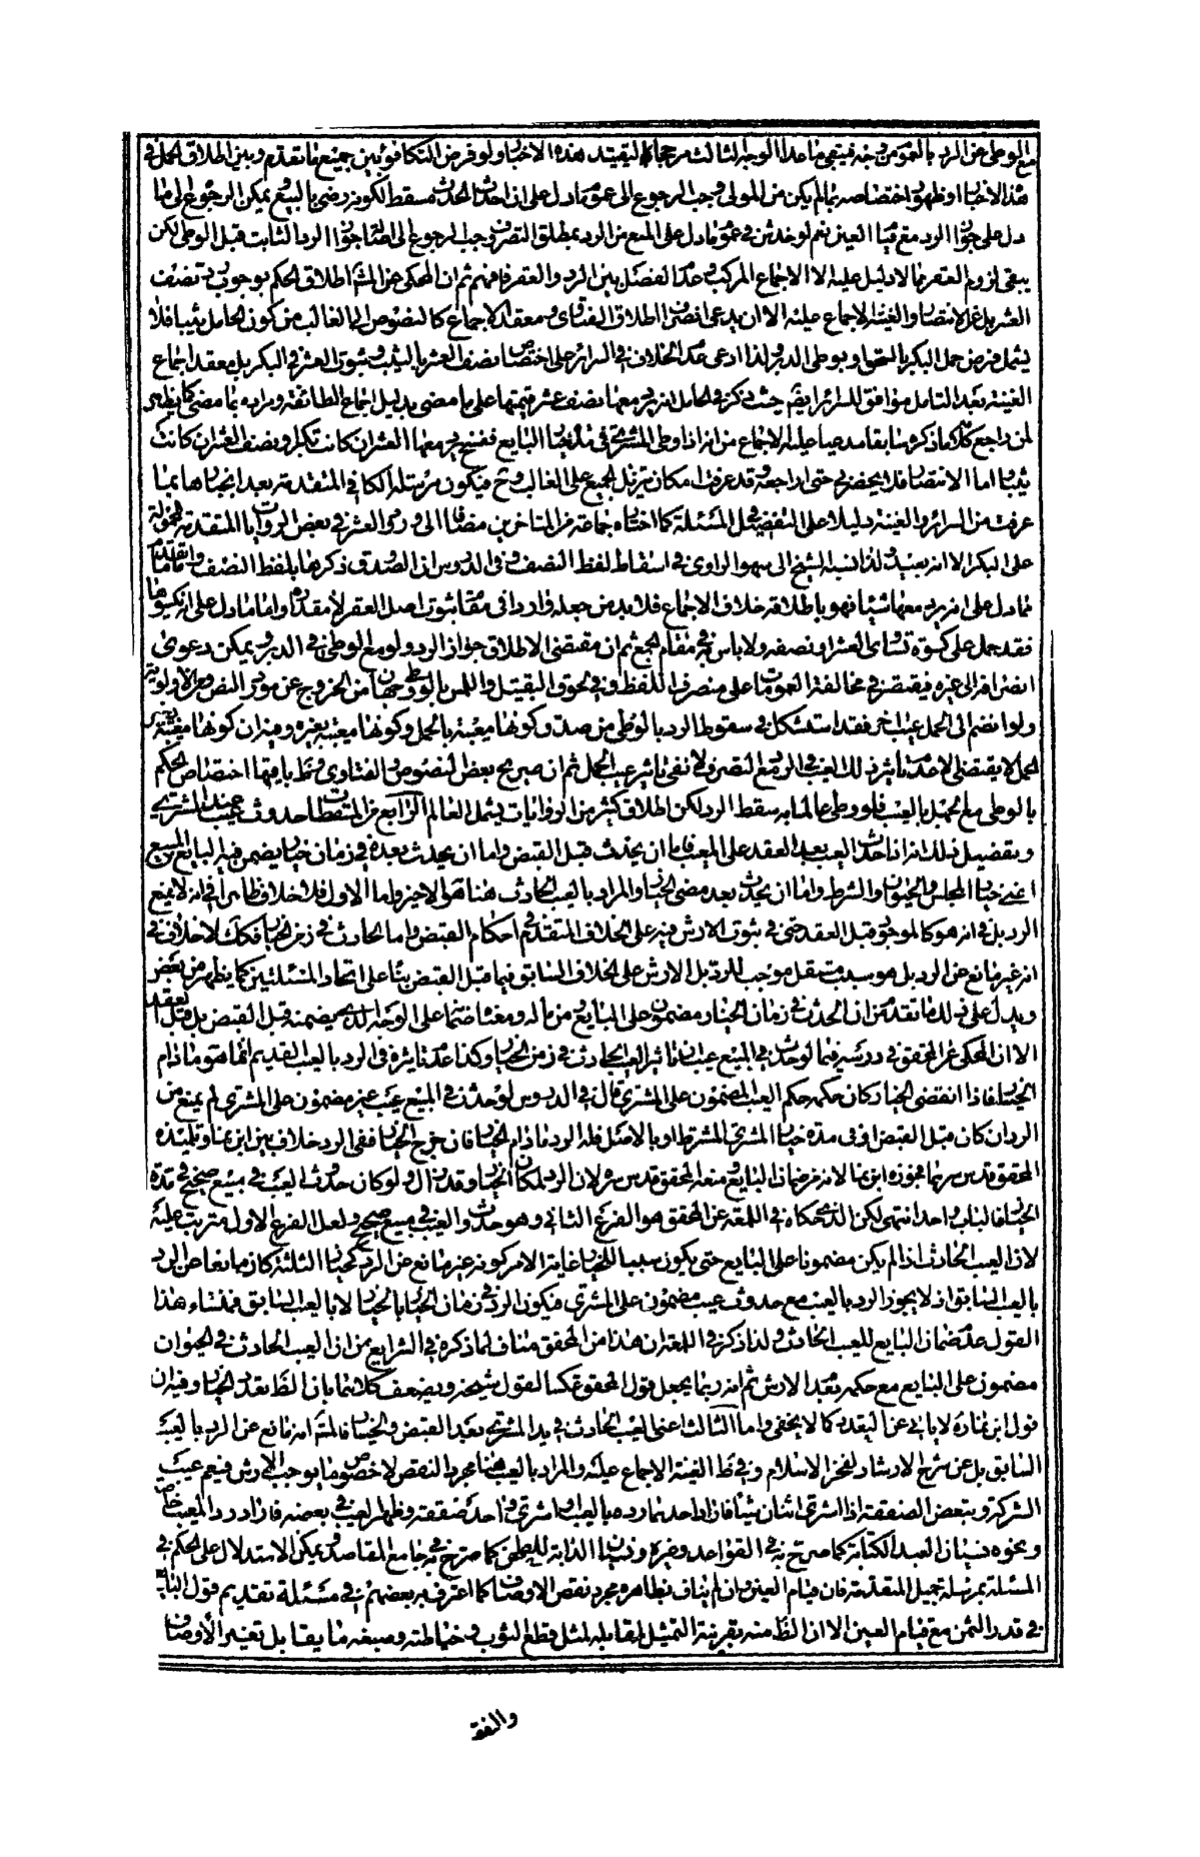 مع الوطى عن الرد بالعموم من وجه فيبقى ما عدا الوجه الثالث مرجحا لتقييد هذه الاخبار ولو فرض التكافؤ بين جميع ما تقدم وبين اطلاق الحمل في
هذا الاخبار او ظهور اختصاصه بما لم يكن من المولى وجب الرجوع الى عموم ما دل على ان احداث الحدث مسقط لكونه رضى بالبيع ويمكن الرجوع الى ما
دل على جواز الرد مع قيام العين نعم لو خدش في عموم ما دل على المنع من الرد بمطلق التصرف وجب الرجوع الى اصالة جواز الرد الثابت قبل الوطى لكن
يبقى لزوم العقر مما لا دليل عليه الا الاجماع المركب وعدم الفصل بين الرد والعقر فافهم ثم ان المحكى عن المشهور اطلاق الحكم بوجوب رد نصف
العشر بل عن الانتصار والغنية الاجماع عليه الا ان يدعى انصراف اطلاق الفتاوى ومعقد الاجماع كالنصوص الى الغالب من كون الحامل ثيبا فلا
يشمل فرض حمل البكر بالسحق او بوطى الدبر ولذا ادعى عدم الخلاف في السرائر على اختصاص نصف العشر بالثيب وثبوت العشر في البكر بل معقد اجماع
الغنية بعد التامل موافق للسرائر ايضا حيث ذكر في الحامل انه يرد معها نصف عشر قيمتها على ما مضى بدليل اجماع الطائفة ومراده بما مضى كما يظهر
لمن راجع كلامه ما ذكره سابقا مدعيا عليه الاجماع من انه اذا وطى المشترى في مدة خيار البايع ففسخ يرد معها العشر ان كانت بكرا ونصف العشر ان كانت
ثيبا واما الانتصار فلا يحضرنى حتى اراجعه وقد عرفت امكان تنزيل الجميع على الغالب وح فيكون مرسلة الكافى المتقدمة بعد انجبارها بما
عرفت من السرائر والغنية دليلا على التفصيل في المسئلة كما اختاره جماعة من المتاخرين مضافا الى ورود العشر في بعض الروايات المتقدمة المحمولة
على البكر الا انه بعيد ولذا نسبه الشيخ الى سهو الراوى في اسقاط لفظ النصف وفى الدروس ان الصدوق ذكرها بلفظ النصف واما ما تقدم
مما دل على انه يرد معها شيئا فهو باطلاقه خلاف الاجماع فلا بد من جعله واردا في مقام ثبوت اصل العقر لا مقداره واما ما دل على انه يكسوها
فقد حمل على كسوة تساوى العشر او نصفه ولا باس به في مقام الجمع ثم ان مقتضى الاطلاق جواز الرد ولو مع الوطى في الدبر ويمكن دعوى
انصرافه الى غيره فيقتصر في مخالفة العمومات على منصرف اللفظ وفى لحوق التقبيل واللمس بالوطى وجهان من الخروج عن مورد النص ومن الاولوية
ولو انضم الى الحمل عيب اخر فقد استشكل في سقوط الرد بالوطى من صدق كونها معيبة بالحمل وكونها معيبة بغيره وفيه ان كونها معيبة بغير
الحمل لا يقتضى الا عدم تاثير ذلك العيب في الرد مع التصرف لا نفى تاثير عيب الحمل ثم ان صريح بعض النصوص والفتاوى وظ باقيها اختصاص الحكم
بالوطى مع الجهل بالعيب فلو وطى عالما به سقط الرد لكن اطلاق كثير من الروايات يشمل العالم الرابع من المسقطات حدوث عيب عند المشترى
وتفصيل ذلك انه اذا حدث العيب بعد العقد على المعيب فاما ان يحدث قبل القبض واما ان يحدث بعده في زمان خيار يضمن فيه البايع المبيع
اعنى خيار المجلس والحيوان والشرط واما ان يحدث بعد مضى الخيار والمراد بالعيب الحادث هنا هو الاخير واما الاول فلا خلاف ظاهرا في انه لا يمنع
الرد بل في انه هو كالموجود قبل العقد حتى في ثبوت الارش فيه على الخلاف المتقدم في احكام القبض واما الحادث في زمن الخيار فكك لا خلاف في
انه غير مانع عن الرد بل هو سبب مستقل موجب للرد بل الارش على الخلاف السابق فيما قبل القبض بناء على اتحاد المسئلتين كما يظهر من بعض
ويدل على ذلك ما تقدم من ان الحدث في زمان الخيار مضمون على البايع من ماله ومعنى ضمانه على الوجه الذى يضمنه قبل القبض بل قبل العقد
الا ان المحكى عن المحقق في درسه فيما لو حدث في المبيع عيب ان تاثير العيب الحادث في زمن الخيار وكذا عدم تاثيره في الرد بالعيب القديم انما هو ما دام
الخيار فاذا انقضى الخيار كان حكمه حكم العيب المضمون على المشترى قال في الدروس لو حدث في المبيع عيب غير مضمون على المشترى لم يمنع من
الرد ان كان قبل القبض او في مدة خيار المشترى المشترط او بالاصل فله الرد ما دام الخيار فان خرج الخيار ففى الرد خلاف بين ابن نما وتلميذه
المحقق قدس سرهما فجوزه ابن نما لانه من ضمان البايع ومنعه المحقق قدس سره لان الرد لمكان الخيار وقد زال ولو كان حدوث العيب في مبيع صحيح في مدة
الخيار فالباب واحد انتهى لكن الذى حكاه في اللمعة عن المحقق هو الفرع الثانى وهو حدوث العيب في مبيع صحيح ولعل الفرع الاول مترتب عليه
لان العيب الحادث اذا لم يكن مضمونا على البايع حتى يكون سببا للخيار غاية الامر كونه غير مانع عن الرد بخيار الثلثة كان مانعا عن الرد
بالعيب السابق اذ لا يجوز الرد بالعيب مع حدوث عيب مضمون على المشترى فيكون الرد في زمان الخيار بالخيار لا بالعيب السابق فمنشاء هذا
القول عدم ضمان البايع للعيب الحادث ولذا ذكر في اللمعة ان هذا من المحقق مناف لما ذكره في الشرايع من ان العيب الحادث في الحيوان
مضمون على البايع مع حكمه بعدم الارش ثم انه ربما يجعل قول المحقق عكسا لقول شيخه ويضعف كلاهما بان الظ تعدد الخيار وفيه ان
قول ابن نما ره لا يابى عن التعدد كما لا يخفى واما الثالث اعنى العيب الحادث في يد المشترى بعد القبض والخيار فالمشهور انه مانع عن الرد بالعيب
السابق بل عن شرح الارشاد لفخر الاسلام وفى ظ الغنية الاجماع عليه والمراد بالعيب هنا مجرد النقص لا خصوص ما يوجب الارش فيعم عيب
الشركة وتبعض الصفقة اذا اشترى اثنان شيئا فاراد احدهما رده بالعيب او اشترى واحد صفقة وظهر العيب في بعضه فاراد رد المعيب خاصة
ونحوه نسيان العبد الكتابة كما صرح به في القواعد وغيره ونسيان الدابة للطحن كما صرح به في جامع المقاصد ويمكن الاستدلال على الحكم في
المسئلة بمرسلة جميل المتقدمة فان قيام العين وان لم يناف بظاهره مجرد نقص الاوصاف كما اعترف به بعضهم في مسئلة تقديم قول البايع
في قدر الثمن مع قيام العين الا ان الظ منه بقرينة التمثيل لمقابله بمثل قطع الثوب وخياطته وصبغه ما يقابل تغير الاوصاف
والنقص